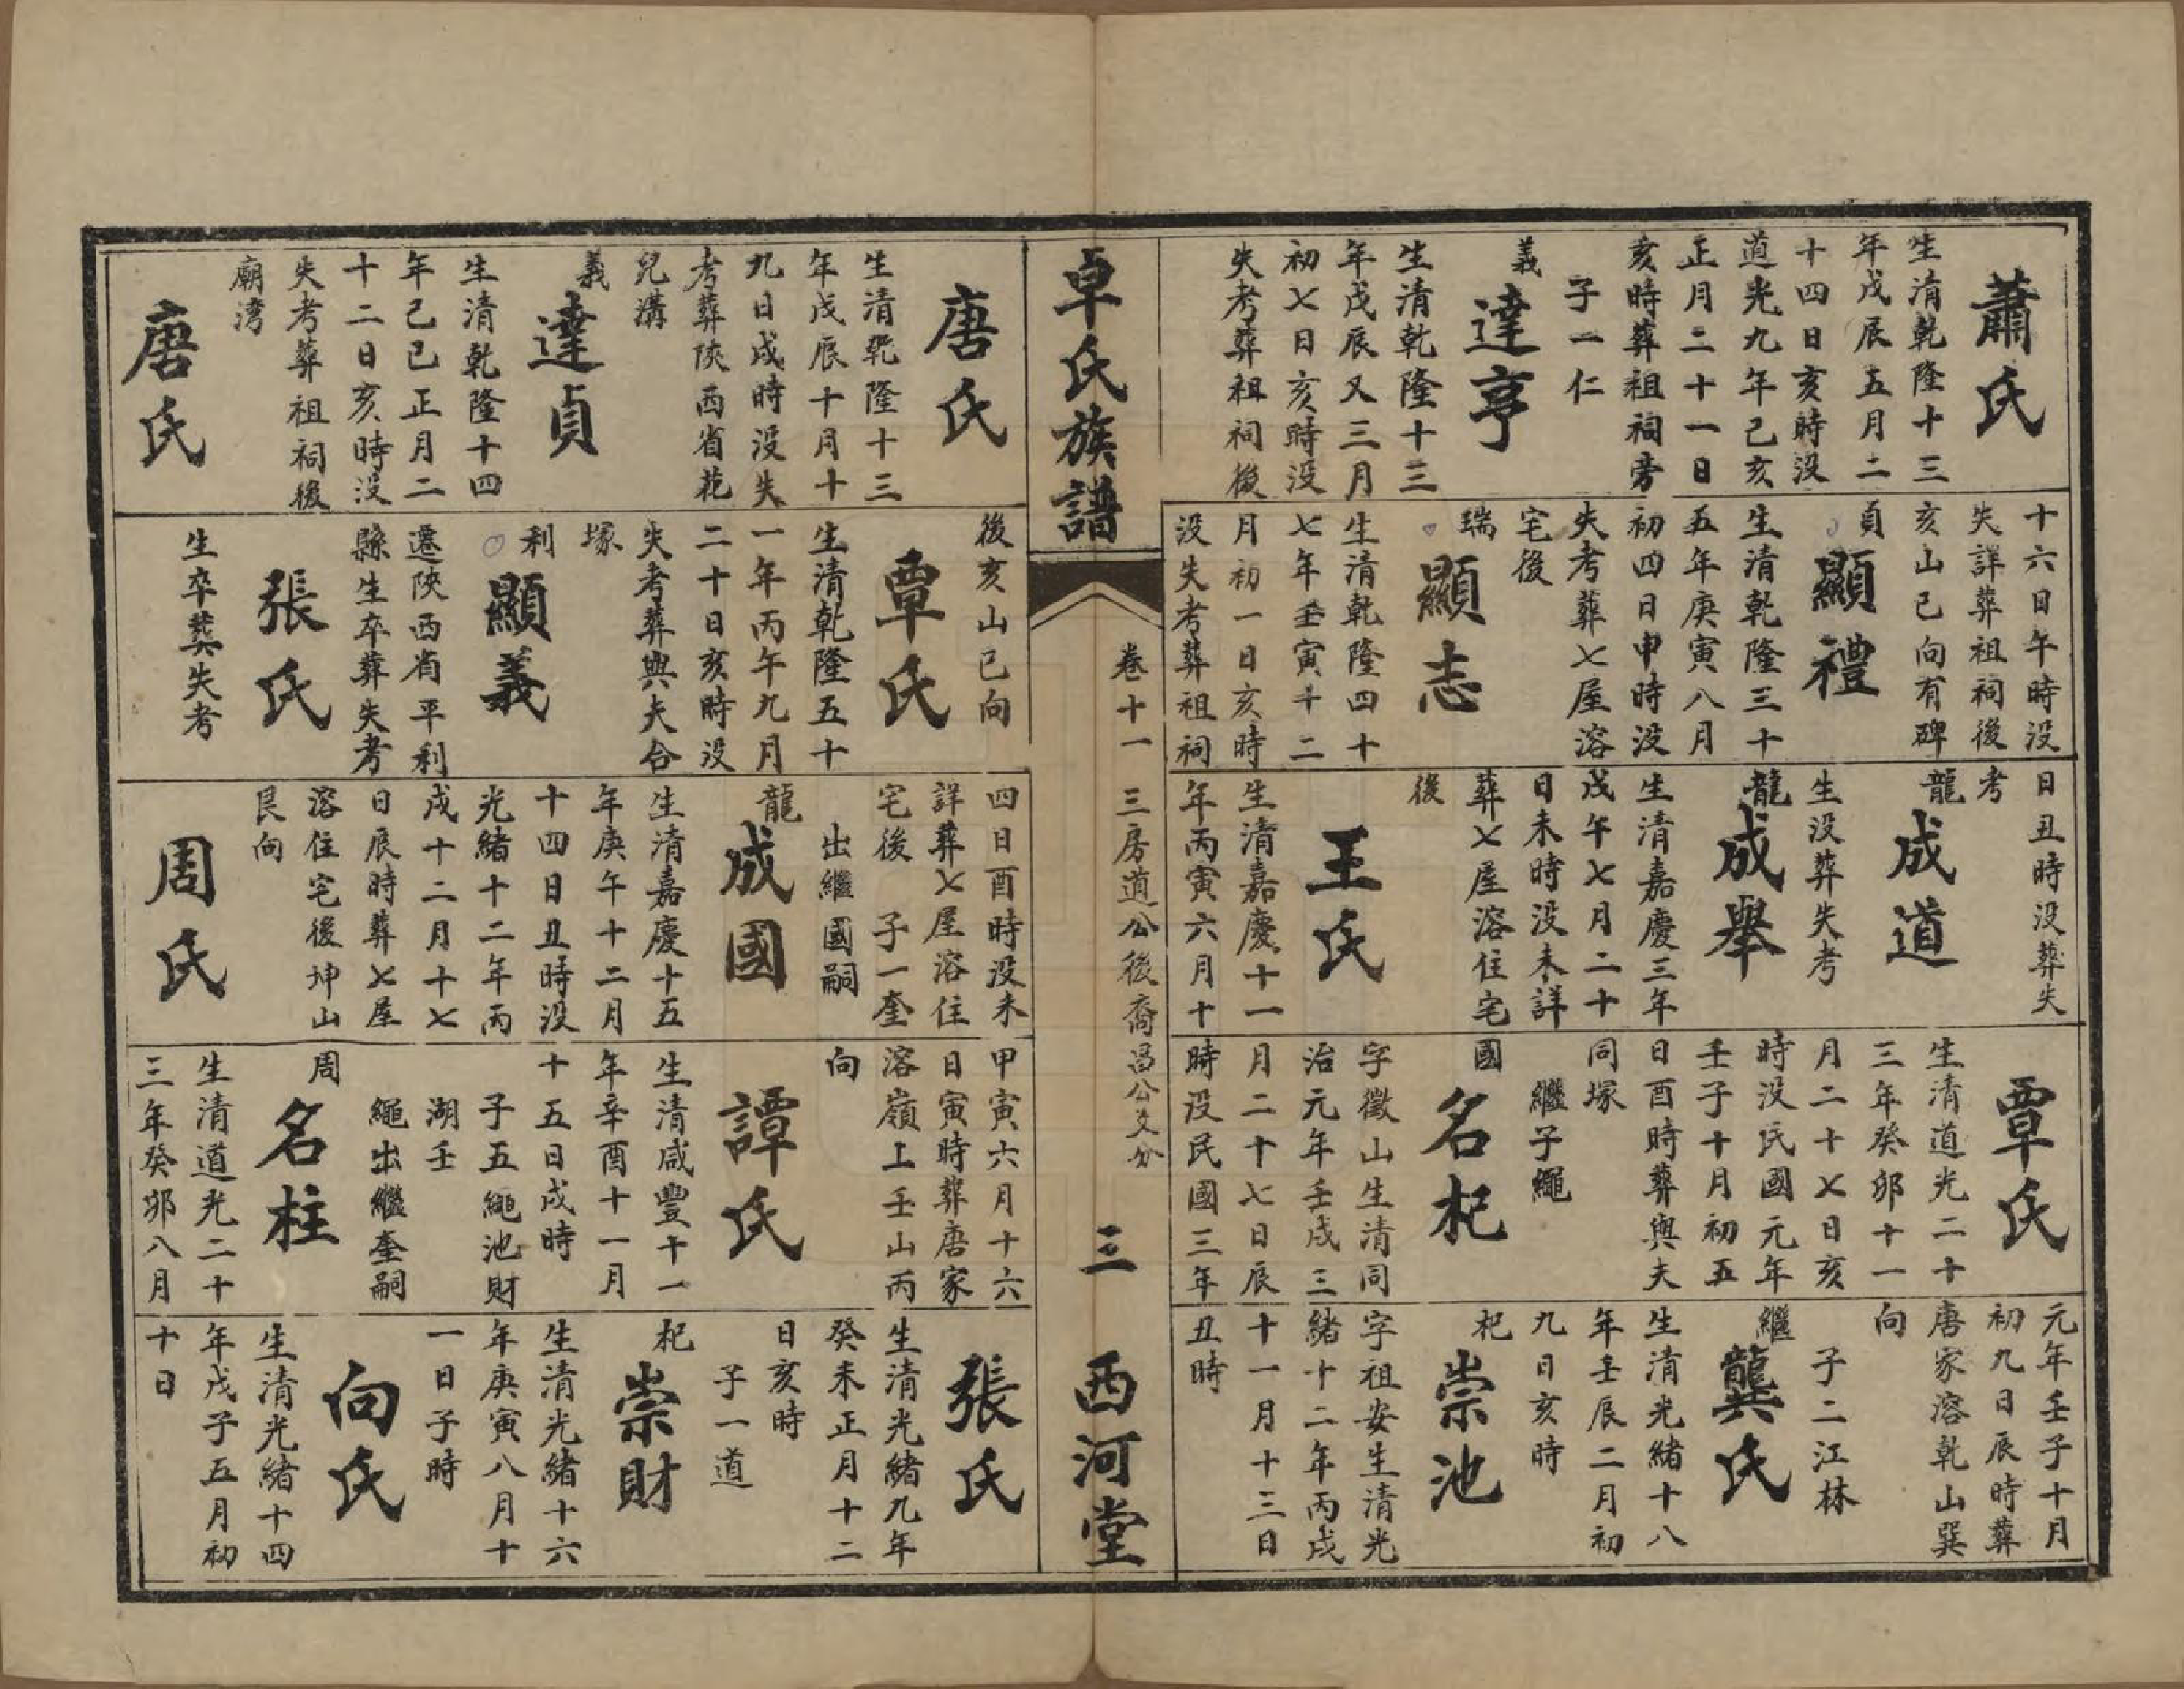 蕭氏
生清乾隆十三
年戊辰五月二
十四日亥時没
道光九年己亥
正月二十一日
亥時葬祖祠旁
子一仁
義
達亨
生清乾隆十三
年戊辰又三月
初七日亥時没
失考葬祖祠後
十六日午時没
失詳葬祖祠後
亥山巳向有碑
貞
顯禮
生清乾隆三十
五年庚寅八月
初四日申時没
失考葬七屋溶
宅後
瑞
顯志
生清乾隆四十
七年壬寅十二
月初一日亥時
没失考葬祖祠
日丑時没葬失
考
龍
成道
生没葬失考
龍
成舉
生清嘉慶三年
戊午七月二十
日未時没未詳
葬七屋溶住宅
後
王氏
生清嘉慶十一
年丙寅六月十
覃氏
生清道光二十
三年癸卯十一
月二十七日亥
時没民國元年
壬子十月初五
日酉時葬與夫
同塚
繼子繩
國
名杞
字徵山生清同
治元年壬戌三
月二十七日辰
時没民國三年
元年壬子十月
初九日辰時葬
唐家溶乾山巽
向
子二江林
繼
龔氏
生清光緒十八
年壬辰二月初
九日亥時
杞
崇池
字祖安生清光
緒十二年丙戌
十一月十三日
丑時
卓氏族譜
卷十一
三房道公後裔昌公支分
三
西河堂
唐氏
生清乾隆十三
年戊辰十月十
九日戌時没失
考葬陝西省花
兒溝
義
達貞
生清乾隆十四
年己巳正月二
十二日亥時没
失考葬祖祠後
廟湾
唐氏
後亥山巳向
覃氏
生清乾隆五十
一年丙午九月
二十日亥時没
失考葬與夫合
塚
利
顯義
遷陝西省平利
縣生卒葬失考
張氏
生卒葬失考
四日酉時没未
詳葬七屋溶住
宅後
子一奎
出繼國嗣
龍
成國
生清嘉慶十五
年庚午十二月
十四日丑時没
光緒十二年丙
戌十二月十七
日辰時葬七屋
溶住宅後坤山
艮向
周氏
甲寅六月十六
日寅時葬唐家
溶嶺上壬山丙
向
譚氏
生清咸豐十一
年辛酉十一月
十五日戌時
子五繩池財
湖壬
繩出繼奎嗣
周
名柱
生清道光二十
三年癸卯八月
張氏
生清光緒九年
癸未正月十二
日亥時
子一道
杞
崇財
生清光緒十六
年庚寅八月十
一日子時
向氏
生清光緒十四
年戊子五月初
十日